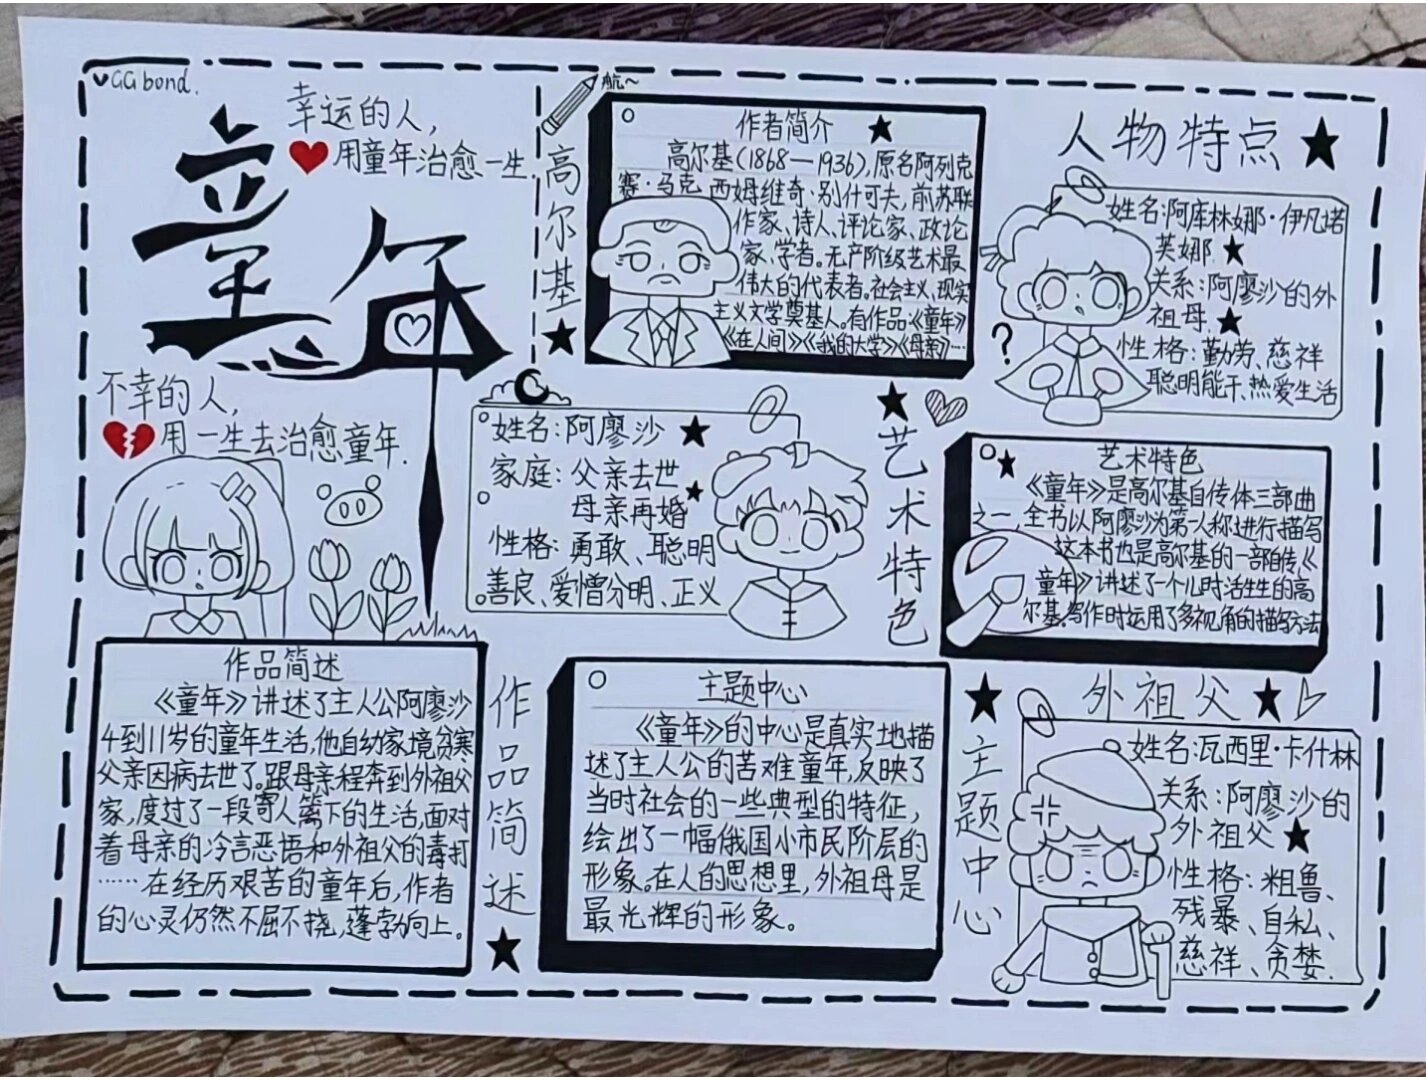 GG bond.
童年
幸运的人，
用童年治愈一生.
不幸的人，
用一生去治愈童年.
航~
高尔基
作者简介
高尔基(1868—1936),原名阿列克
赛·马克西姆维奇·别什可夫,前苏联
作家、诗人、评论家、政论
家、学者。无产阶级艺术最
伟大的代表者。社会主义、现实
主义文学奠基人。有作品《童年》
《在人间》《我的大学》《母亲》…
人物特点
姓名:阿库林娜·伊凡诺
芙娜.
关系:阿廖沙的外
祖母.
性格:勤劳、慈祥
聪明能干、热爱生活
?
姓名:阿廖沙
家庭:父亲去世
母亲再婚
性格:勇敢、聪明
善良、爱憎分明、正义
艺术特色
艺术特色
《童年》是高尔基自传体三部曲
之一,全书以阿廖沙为第一人称进行描写
这本书也是高尔基的一部自传,《
童年》讲述了一个儿时活生生的高
尔基.写作时运用了多视角的描写方法
作品简述
《童年》讲述了主人公阿廖沙
4到11岁的童年生活,他自幼家境贫寒
父亲因病去世了。跟母亲程奔到外祖父
家,度过了一段寄人篱下的生活,面对
着母亲的冷言恶语和外祖父的毒打
……在经历艰苦的童年后,作者
的心灵仍然不屈不挠,蓬勃向上。
作品简述
主题中心
《童年》的中心是真实地描
述了主人公的苦难童年,反映了
当时社会的一些典型的特征,
绘出了一幅俄国小市民阶层的
形象。在人的思想里,外祖母是
最光辉的形象。
主题中心
外祖父
姓名:瓦西里·卡什林
关系:阿廖沙的
外祖父
性格:粗鲁、
残暴、自私、
慈祥、贪婪.